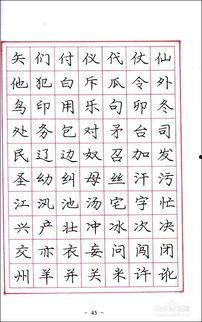 矢们付仪代仗仙
他犯白斥瓜令外
鸟印用乐句卯冬
处务包对矛台司
民辽边奴召加发
圣幼纠母丝汗污
江汎池汤宇忙决
兴产壮冲冰次决
交亦衣妄问闯闭
州羊并关米许讹
- 43 -